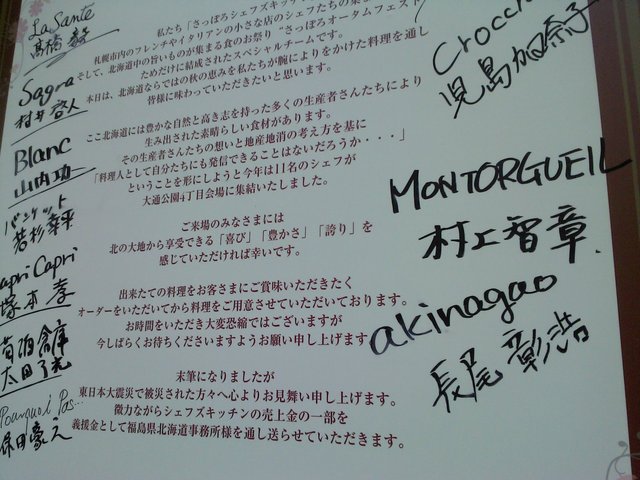 La Sante
高橋 毅
Sagra
村井 啓人
Blanc
山内 功
バンケット
若杉幸平
apri Capri
塚本 孝
青泊倉庫
太田
Pourquoi Pas...
保田
私たち「さっぽろシェフズキッチン
札幌市内のフレンチやイタリアンの小さな店のシェフたちの集まり
そして、北海道中の旨いものが集まる食のお祭り"さっぽろオータムフェスト
ためだけに結成されたスペシャルチームです。
本日は、北海道ならではの秋の恵みを私たちが腕によりをかけた料理を通し
皆様に味わっていただきたいと思います。
ここ北海道には豊かな自然と高き志を持った多くの生産者さんたちにより
生み出された素晴らしい食材があります。
その生産者さんたちの想いと地産地消の考え方を基に
「料理人として自分たちにも発信できることはないだろうか・・・・」
ということを形にしようと今年は11名のシェフが
大通公園4丁目会場に集結いたしました。
ご来場のみなさまには
北の大地から享受できる「喜び」「豊かさ」「誇り」を
感じていただければ幸いです。
出来たての料理をお客さまにご賞味いただきたく
オーダーをいただいてから料理をご用意させていただいております。
お時間をいただき大変恐縮ではございますが
今しばらくお待ちくださいますようお願い申し上げます
末筆になりましたが
東日本大震災で被災された方々へ心よりお見舞い申し上げます。
微力ながらシェフズキッチンの売上金の一部を
義援金として福島県北海道事務所様を通し送らせていただきます。
Crocchi
児島加奈子
MONTORGUEIL
村上智章
akinagao
長尾 彰浩